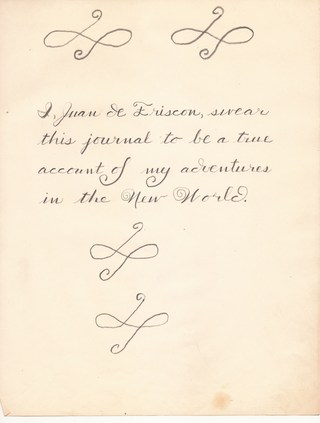 I, Juan de Friscon, swear
this journal to be a true
account of my adventures
in the New World.